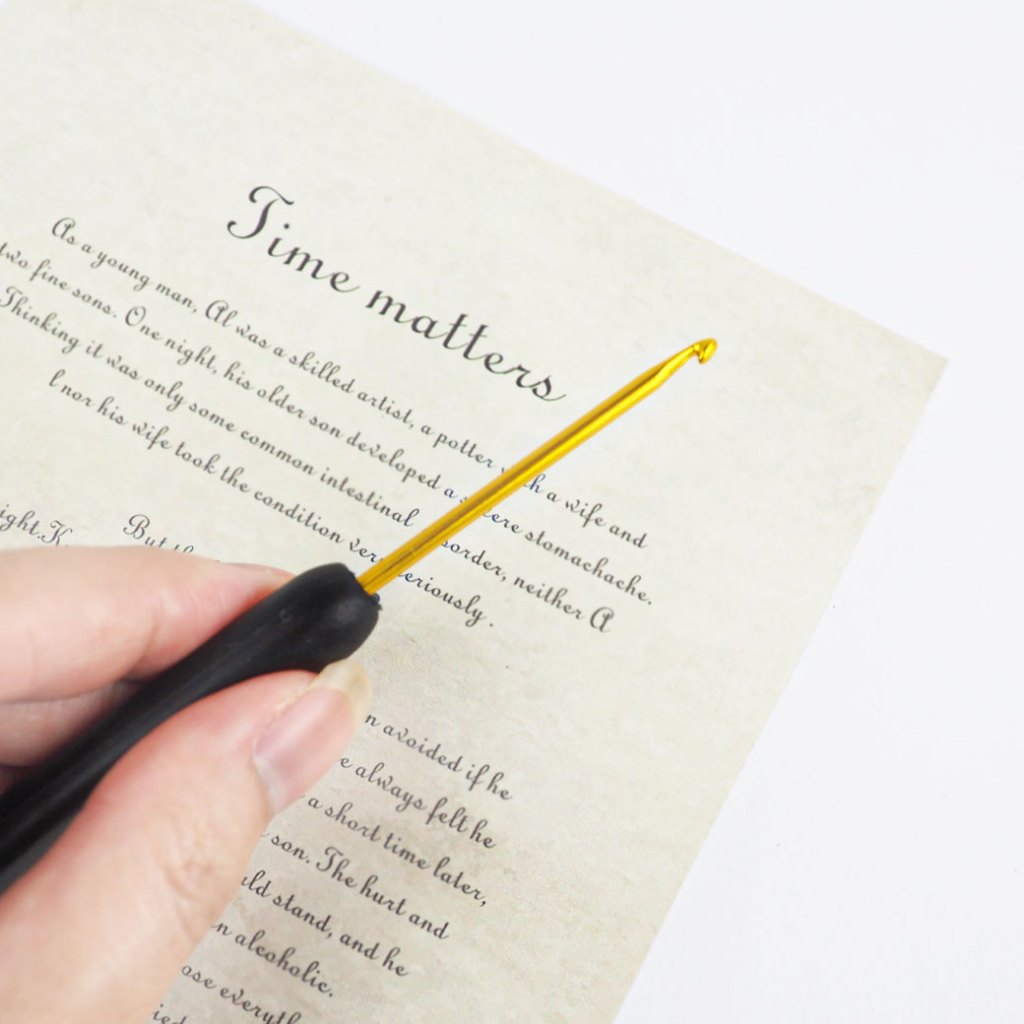 Time matters
As a young man, Al was a skilled artist, a potter with a wife and
two fine sons. One night, his older son developed a severe stomachache.
Thinking it was only some common intestinal disorder, neither A
l nor his wife took the condition very seriously.
But
n avoided if he
always felt he
a short time later,
son. The hurt and
stand, and he
alcoholic.